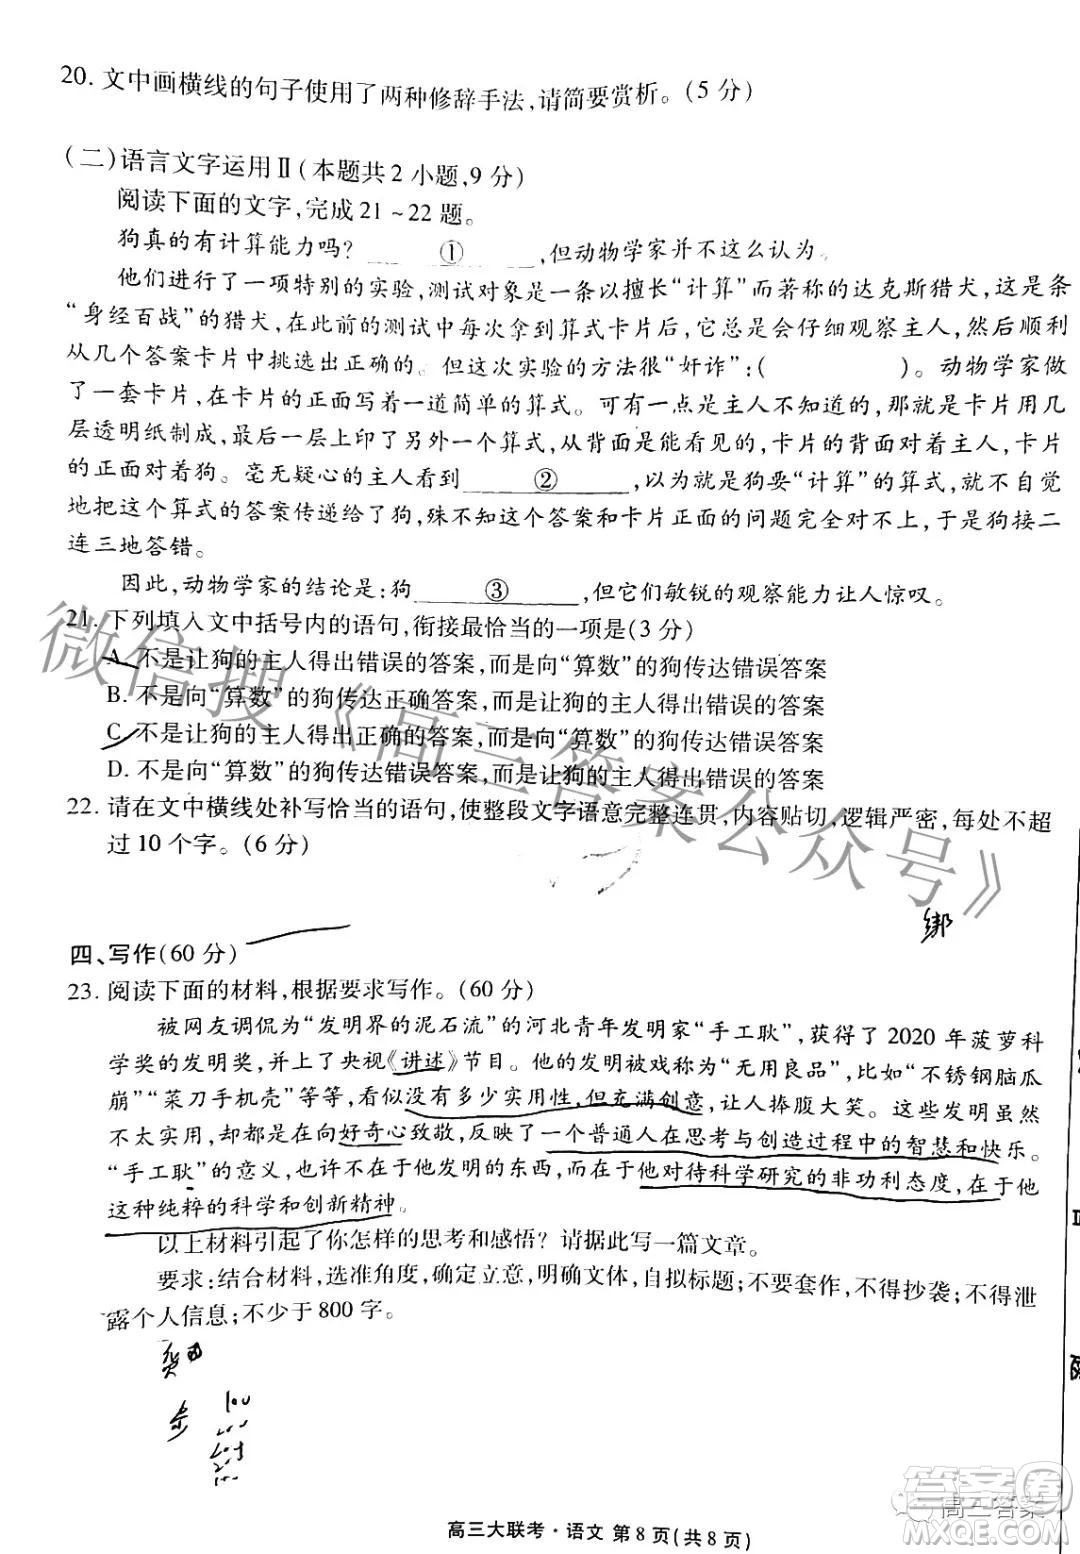 20. 文中画横线的句子使用了两种修辞手法,请简要赏析。(5 分)
(二)语言文字运用Ⅱ(本题共2小题,9分)
阅读下面的文字,完成21~22题。
狗真的有计算能力吗?①,但动物学家并不这么认为。
他们进行了一项特别的实验,测试对象是一条以擅长“计算”而著称的达克斯猎犬。这是条
“身经百战”的猎犬,在此前的测试中每次拿到算式卡片后,它总是会仔细观察主人,然后顺利
从几个答案卡片中挑选出正确的。但这次实验的方法很“奸诈”:( )。动物学家做
了一套卡片,在卡片的正面写着一道简单的算式。可有一点是主人不知道的,那就是卡片用几
层透明纸制成,最后一层上印了另外一个算式,从背面是能看见的,卡片的背面对着主人,卡片
的正面对着狗。毫无疑心的主人看到②,以为就是狗要“计算”的算式,在不自觉
地把这个算式的答案传递给了狗,殊不知这个答案和卡片正面的问题完全对不上,于是狗接二
连三地答错。
因此,动物学家的结论是:狗③,但它们敏锐的观察能力让人惊叹。
21. 下列填入文中括号内的语句,衔接最恰当的一项是(3 分)
A. 不是让狗的主人得出错误的答案,而是向“算数”的狗传达错误答案
B. 不是向“算数”的狗传达正确答案,而是让狗的主人得出错误的答案
C. 不是让狗的主人得出正确的答案,而是向“算数”的狗传达错误答案
D. 不是向“算数”的狗传达错误答案,而是让狗的主人得出错误的答案
22. 请在文中横线处补写恰当的语句,使整段文字语意完整连贯,内容贴切,逻辑严密,每处不超
过 10 个字。(6 分)
绑
四、写作(60 分)
23. 阅读下面的材料,根据要求写作。(60 分)
被网友调侃为“发明界的泥石流”的河北青年发明家“手工耿”,获得了 2020 年菠萝科
学奖的发明奖,并上了央视《讲述》节目。他的发明被戏称为“无用良品”,比如“不锈钢脑瓜
崩”“菜刀手机壳”等等,看似没有多少实用性,但充满创意,让人捧腹大笑。这些发明虽然
不太实用,却都是在向好奇心致敬,反映了一个普通人在思考与创造过程中的智慧和快乐。
“手工耿”的意义,也许不在于他发明的东西,而在于他对待科学研究的非功利态度,在于他
这种纯粹的科学和创新精神。
以上材料引起了你怎样的思考和感悟?请据此写一篇文章。
要求:结合材料,选准角度,确定立意,明确文体,自拟标题;不要套作,不得抄袭;不得泄
露个人信息;不少于 800 字。
高三大联考·语文 第 8 页(共 8 页)
微信搜《高三答案公众号》
答案圈
高三答案